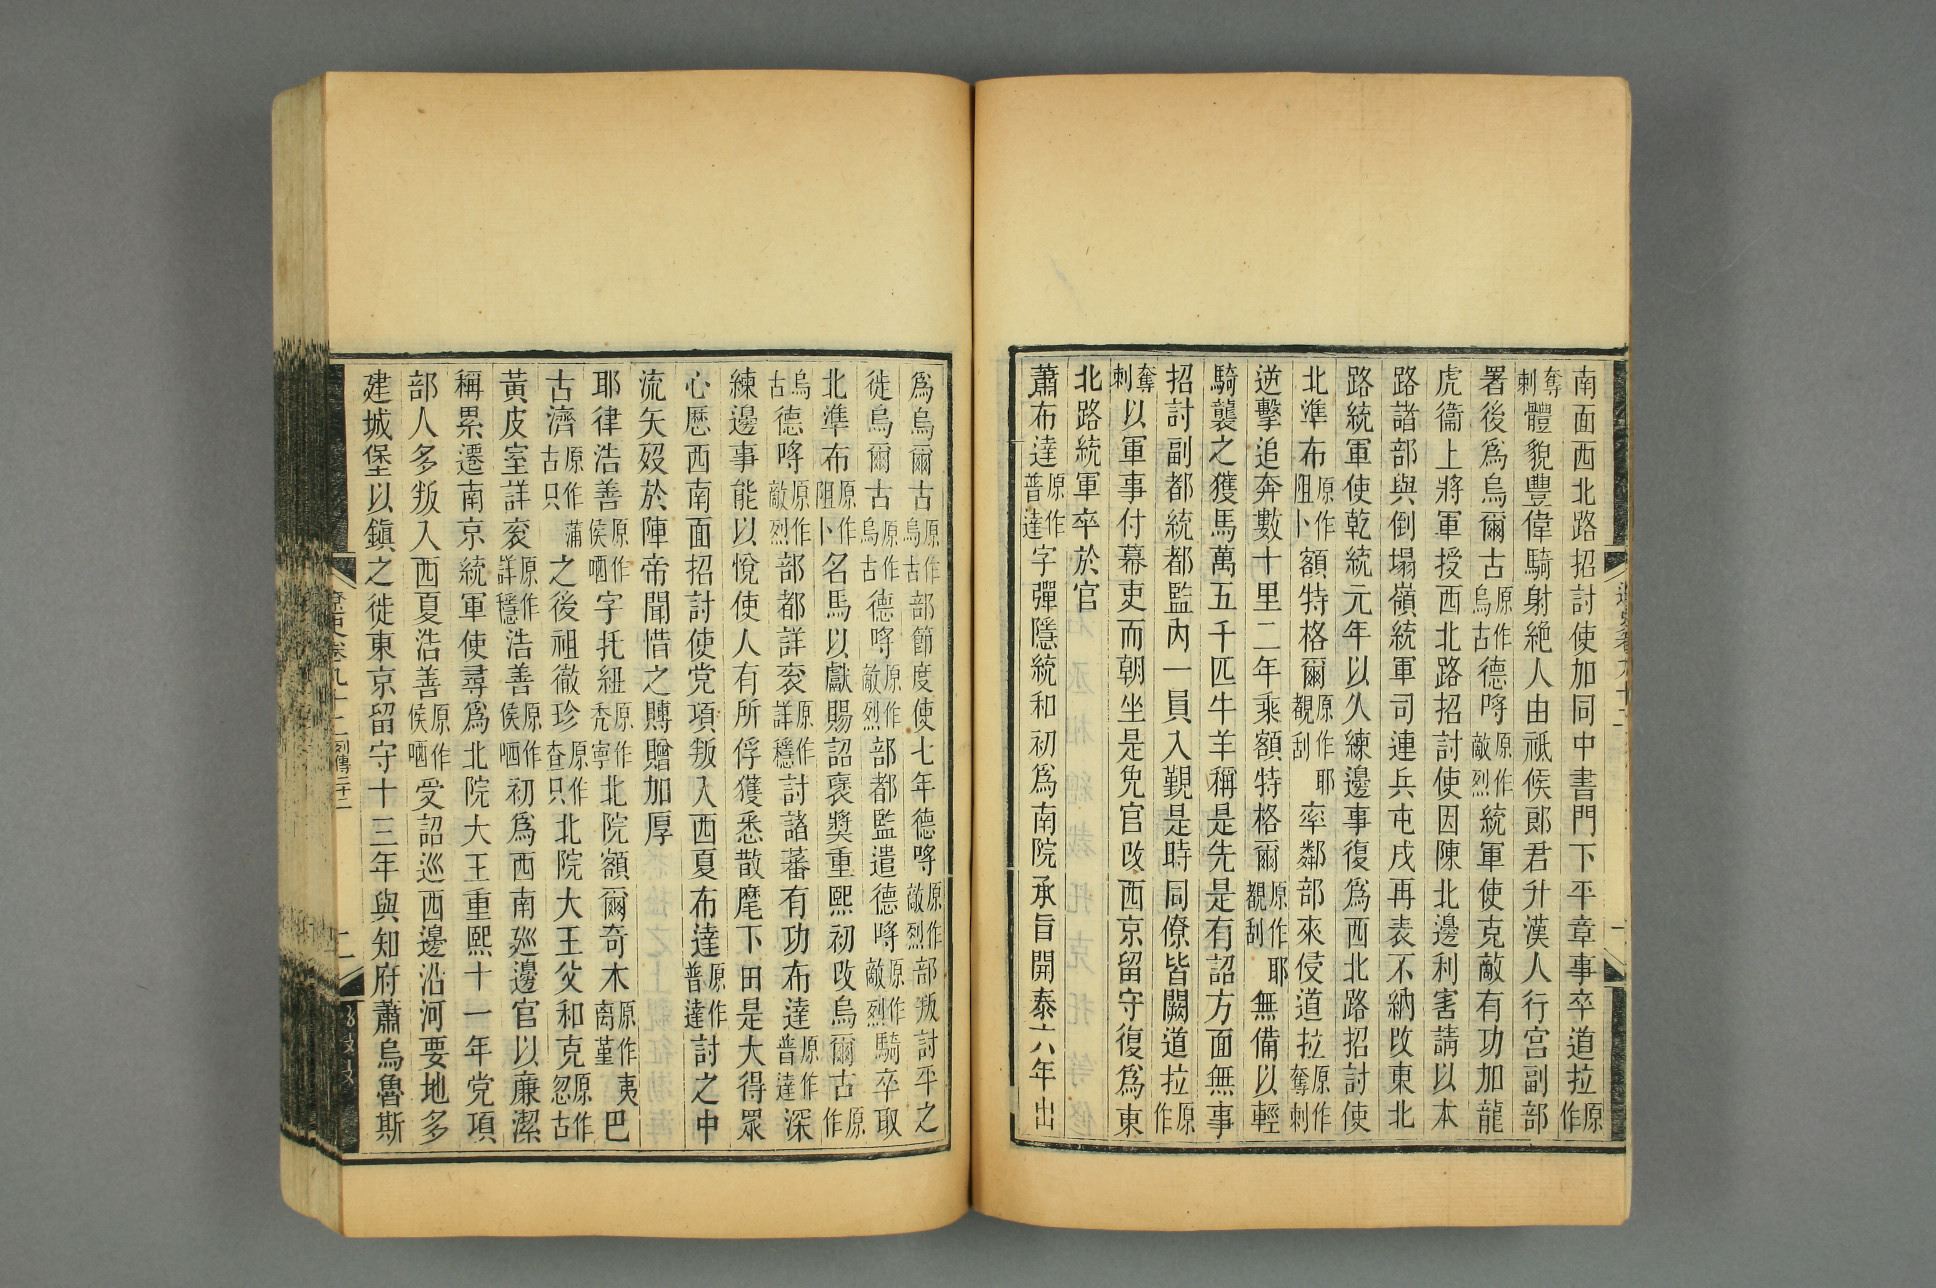 南面西北路招討使加同中書門下平章事卒道拉原作
奪剌體貌豐偉騎射絶人由祗候郞君升漢人行宮副部
署後爲烏爾古原作烏古德哷原作敵烈統軍使克敵有功加龍
虎衞上將軍授西北路招討使因陳北邊利害請以本
路諸部與倒塌嶺統軍司連兵屯戍再表不納改東北
路統軍使乾統元年以久練邊事復爲西北路招討使
北準布原作阻卜額特格爾原作耶覩刮率鄰部來侵道拉原作奪剌
逆擊追奔數十里二年乘額特格爾原作耶覩刮無備以輕
騎襲之獲馬萬五千匹牛羊稱是先是有詔方面無事
招討副都統都監內一員入覲是時同僚皆闕道拉原作
奪剌以軍事付幕吏而朝坐是免官改西京留守復爲東
北路統軍卒於官
蕭布達原作普達字彈隱統和初爲南院承旨開泰六年出
爲烏爾古原作烏古部節度使七年德哷原作敵烈部叛討平之
徙烏爾古原作烏古德哷原作敵烈部都監遣德哷原作敵烈騎卒取
北準布原作阻卜名馬以獻賜詔褒獎重熙初改烏爾古原作
烏古德哷原作敵烈部都詳衮原作詳穩討諸蕃有功布達原作普達深
練邊事能以悅使人有所俘獲悉散麾下由是大得眾
心歷西南面招討使党項叛入西夏布達原作普達討之中
流矢歿於陣帝聞惜之賻贈加厚
耶律浩善原作侯哂字托紐原作禿寧北院額爾奇木原作夷离堇巴
古濟原作蒲古只之後祖徹珍原作查只北院大王父和克原作忽古
黃皮室詳衮原作詳穩浩善原作侯哂初爲西南巡邊官以廉潔
稱累遷南京統軍使尋爲北院大王重熙十一年党項
部人多叛入西夏浩善原作侯哂受詔巡西邊沿河要地多
建城堡以鎭之徙東京留守十三年與知府蕭烏魯斯
遼史卷九十二 列傳二十二
二